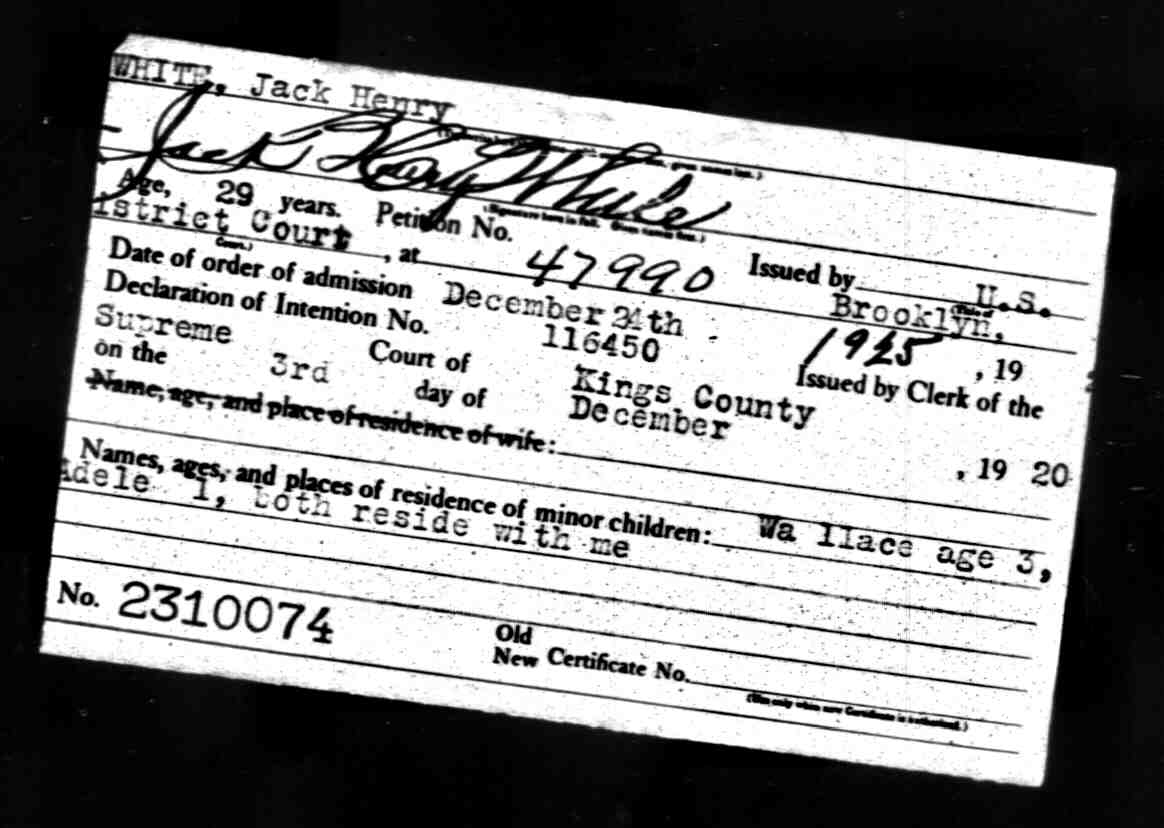 WHITE, Jack Henry
Jack Henry White
Age, 29 years. Petition No. 47990 Issued by U.S.
istrict Court, at Brooklyn,
(Court.)
Date of order of admission December 24th 1925, 19
Declaration of Intention No. 116450 Issued by Clerk of the
Supreme Court of Kings County
on the 3rd day of December, 19 20
Name, age, and place of residence of wife:
Names, ages, and places of residence of minor children: Wa llace age 3,
Adele 1, both reside with me
No. 2310074
Old
New Certificate No.